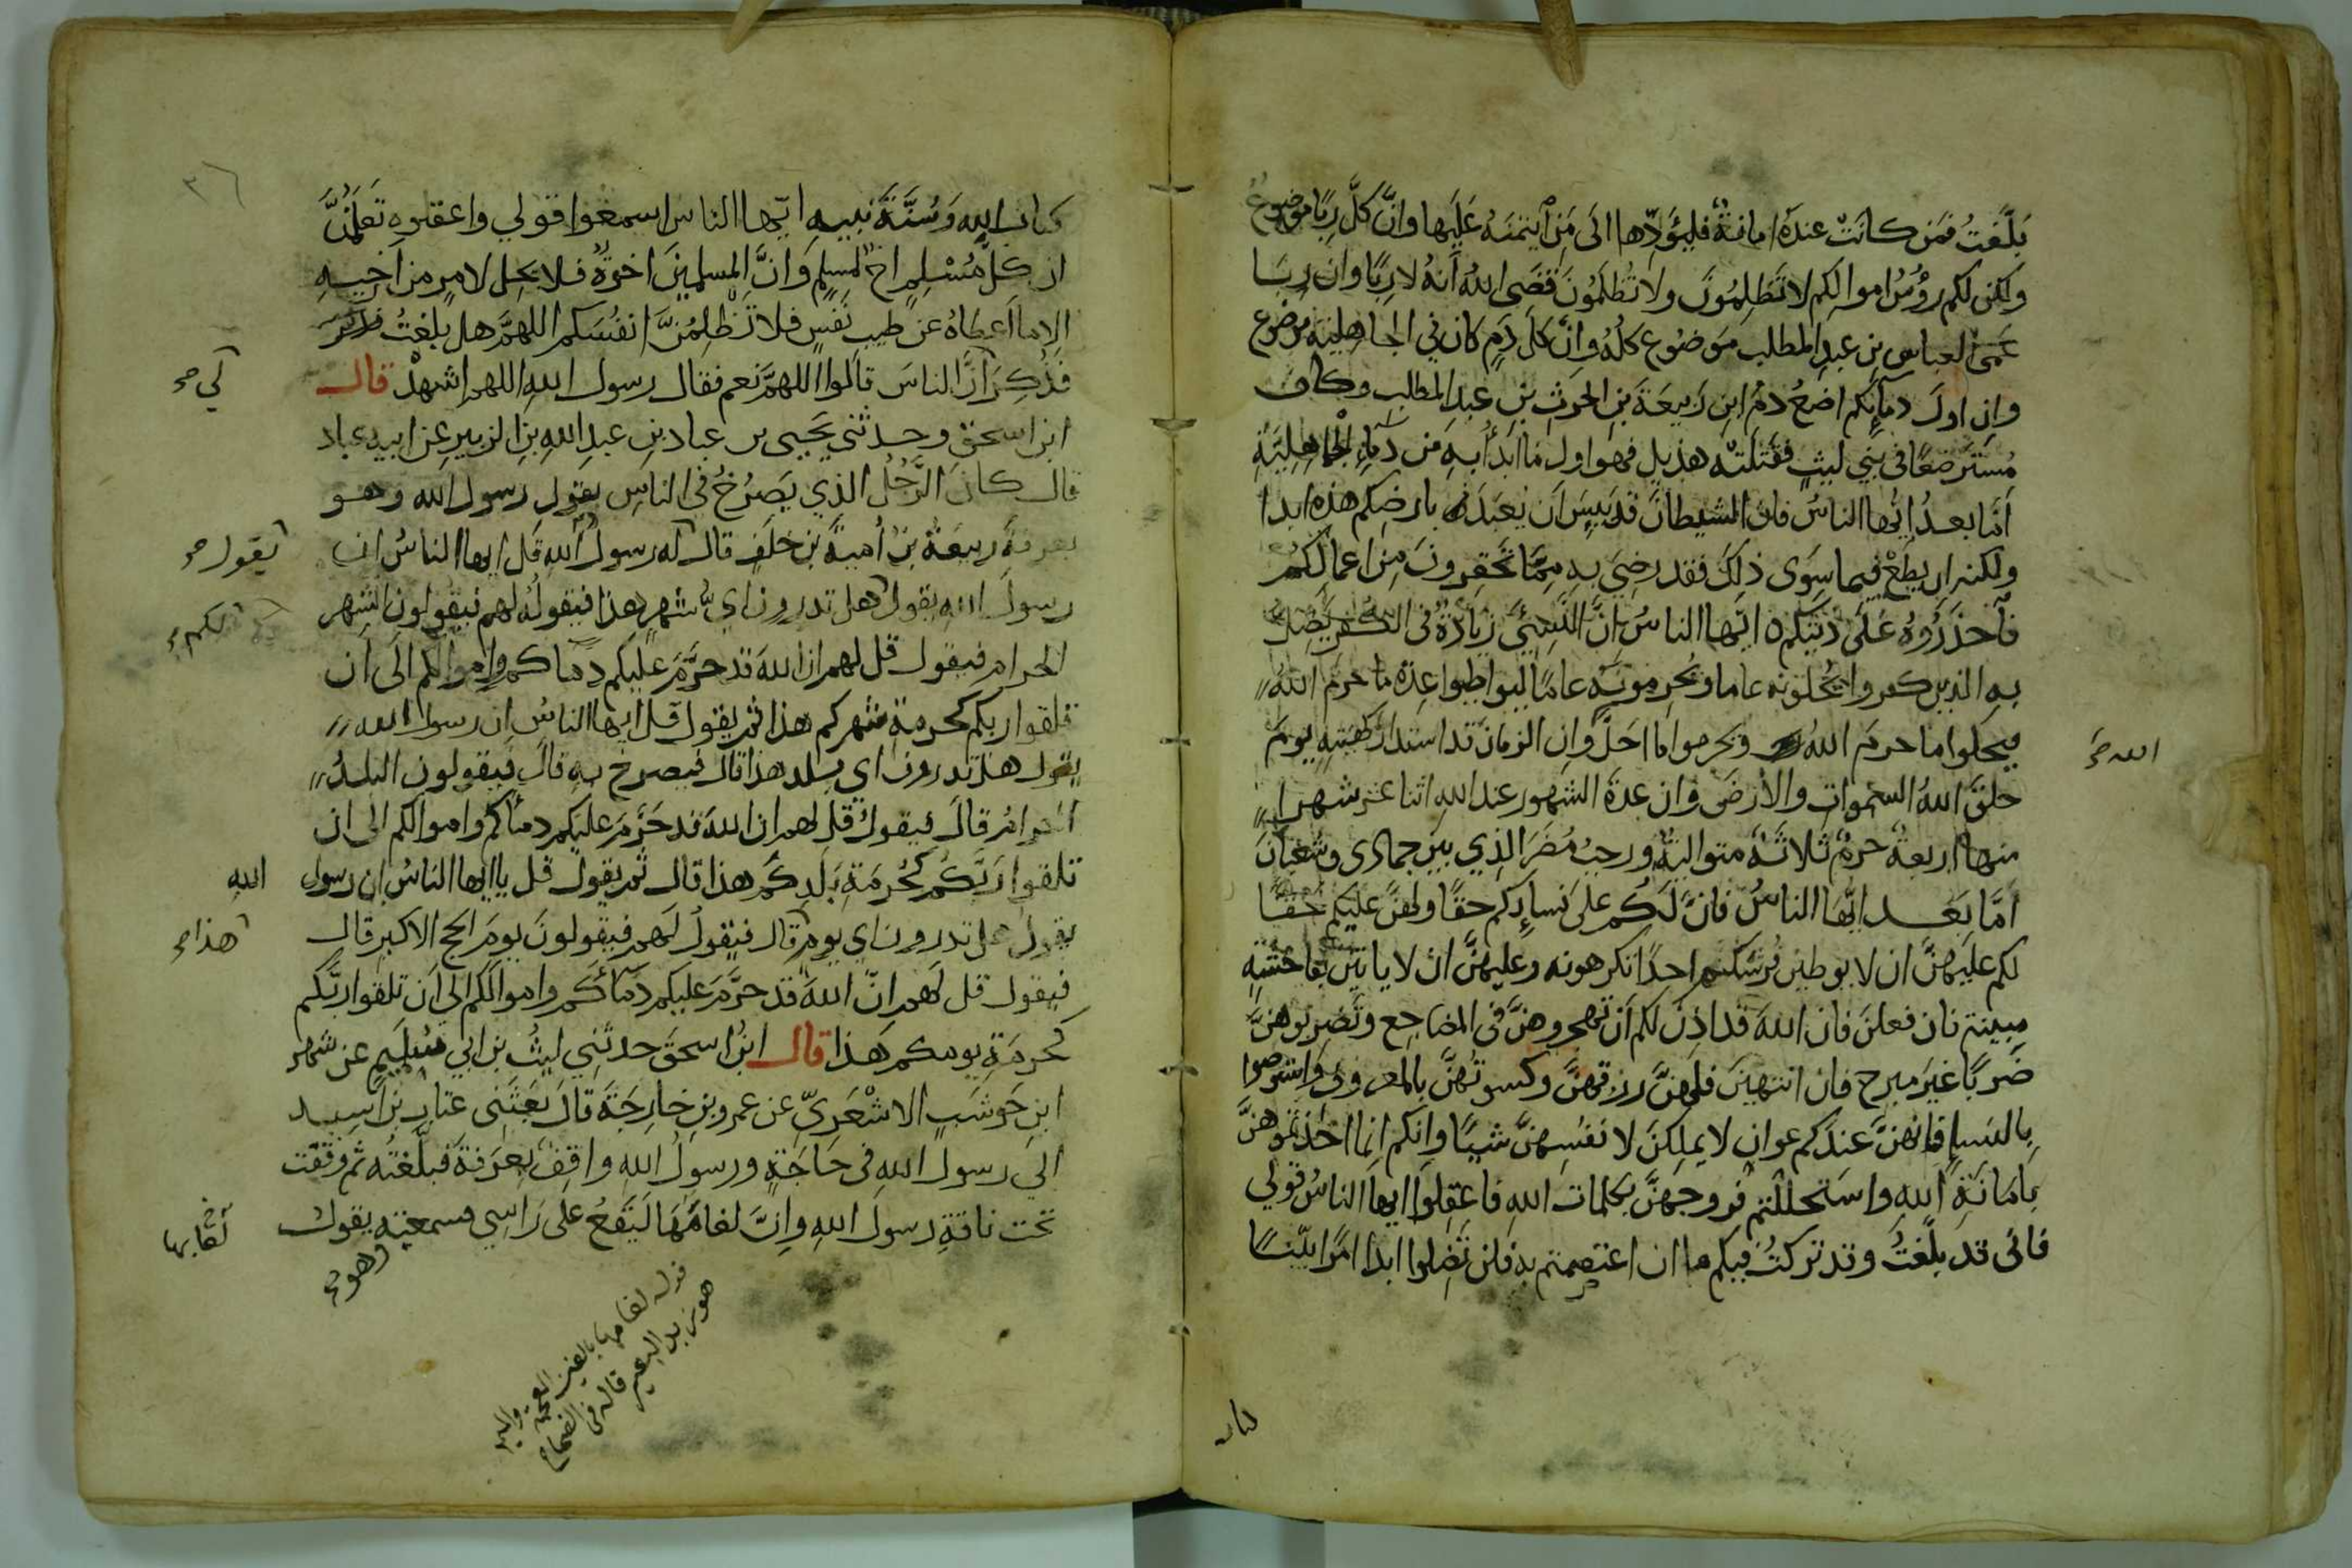 بَلَّغتُ فمَن كانَتْ عندَهُ امانةٌ فليُؤَدِّها الَى مَنِ ائتمنَهُ عَلَيها وانَّ كلَّ رِبًا موضوعٌ
ولكن لكم رؤُسُ اموالِكم لا تَظلِمُونَ ولا تُظلَمُونَ قضَى اللهُ أنهُ لا رِبًا وان رِبَا
عَمِّي العباسِ بنِ عبدِ المطلب مَوضوع كلُّهُ وانَّ كلَ دَمٍ كان في الجاهليةِ موضوع
وانِ اولَ دمآئِكم اضَعُ دمُ ابنِ رَبيعَةَ بنِ الحرثِ بنِ عبدِ المطلبِ وكان
مُسترضَعًا في بني ليثٍ فقتَلَتْه هذيل فهوا ول ما ابدأُ به مَن دمآءِ الجاهليَّةِ
أمَّا بعدُ ايُّها الناسُ فانَّ الشيطانَ قد يَئِسَ أن يُعبَدَ بارضِكم هذه ابدا
ولكنه ان يُطَعْ فيما سِوَى ذلكَ فقد رضِيَ به مِمَّا تَحقِرونَ مِن اعمالِكُم
فآحذَرُوهُ عَلَى دينِكم ايّها الناسُ انَّ النَّسِئَ زيَادَةٌ فى الكُفرِ يُضِلُّ
بِهِ الذين كفروا يُحلّونه عاما ويُحرمونَه عامًا ليواطيوا عِدةَ ما حرم اللهُ
فيحلوا ما حرمَ اللهُ ويحرموا ما احَلَّ وانِ الزمانَ قد استدار كهيئتِهِ يومَ
خلقَ اللهُ السموات والأرضَ وان عدةَ الشهورِ عند اللهِ اثنا عشر شهرا
الله صح
منها اربعةٌ حرمٌ ثلاثَةٌ متواليةٌ ورجبُ مُضَرَ الذي بين جمادى وشعبانَ
أمَّا بَعد ايُّها الناسُ فانَّ لَكُم على نسايِكم حقًا ولهنَّ عليكم حقًّا
لكم علَيهنَّ ان لا يوطين فُرشكم احدًا تكرهونه وعليهنَّ ان لا ياتين بفاحشةٍ
مبينةٍ فان فعلنَ فان اللهَ قد اذِنَ لكم أن تهجروهنَّ فى المضاجِع وتَضربوهنَّ
ضَربًا غيرَ مبرح فان انتهينَ فلهُنَّ رزقهنَّ وكسوتُهنَّ بالمعروفِ واستوصوا
بِالنسآءِ فانهنَّ عندَكم عوانٍ لا يملِكنَ لانفُسِهنَّ شيئًا وانكم انما اخذتموهنَّ
بِامَانَةِ اللهِ واستحللتم فروجهنَّ بكلمات اللهِ فاعقِلوا ايها الناسُ قولي
فانى قد بلَّغتُ وقد تركتُ فيكم ما ان اعتصمتم به فلن تَضِلوا ابدا امرًا بيّنًا
كتاب
٣٦
كتابَ اللهِ وَسُنَّةَ نبيهِ ايّها الناس اسمعُوا قولي واعقلوه تَعلَّمُنَّ
ان كلَّ مُسْلِمٍ اخٌ لمسلمٍ وَانَّ المسلمينَ اخوَةٌ فلا يحِل لامرٍ من اخيهِ
الا ما أعطاهُ عن طيبِ نَفسٍ فلا تَظلِمُنَّ انفُسَكم اللهمَّ هل بلغتُ
فذُكِرَ أنَّ الناسَ قالوا اللهمَّ نعم فقال رسول اللهِ اللهم اشهدْ قال
لي صح
ابن اسحقَ وحدثني يَحيى بن عبادِ بنِ عبدِ اللهِ بنِ الزبيرِ عن ابيهِ عباد
قال كانَ الرَّجُلُ الذي يَصرُخُ فى الناسِ بقولِ رسول الله وهو
بعرفةَ ربيعَةُ بنُ أميةَ بنِ خلَفٍ قال له رسولُ اللهِ قُل ايها الناسُ ان
يقول صح
رسولَ اللهِ يقول هل تدرون ايُّ شهرٍ هذا فيقولُه لهم فيقولون الشهر
لكم
الحرام فيقول قل لهم ان اللهَ قد حرَّمَ عليكم دماكم واموالكم الَى أن
تلقوا ربكم كحرمةِ شهركم هذا ثم يقول قل ايها الناسُ ان رسول الله
يقول هل تدرون اي بلد هذا قال فيصرخ به قالَ فيقولون البلدُ
الحرامُ قالَ فيقولُ قل لهم ان اللهَ قد حَرَّمَ عليكم دماكم واموالكم الى ان
تلقوا رَبَّكُم كحُرمَةِ بَلَدِكُم هذا قال ثم يقولُ قل يا ايها الناسُ ان رسول
الله
يقول هل تدرون اي يوم قال فيقولُ لَهم فيقولونَ يومَ الحج الاكبرِ قال
هذا صح
فيقول قل لَهم انّ اللهَ قد حرَّمَ عليكم دمآئكم واموالَكم الى أن تلقوا ربَّكم
كحُرمَةِ يومكم هذا قال ابنُ اسحقَ حدثني ليثُ بن ابي سُليمٍ عن شهرِ
ابنِ حَوشبٍ الاشْعَرِيِّ عن عمرو بنِ خارِجَةَ قال بَعَثَني عتاب بن اسيد
الى رسول الله فى حَاجَةٍ ورسولُ اللهِ واقِفٌ بعرفةَ فبلَّغتُه ثم وقفت
تحت ناقةِ رسول اللهِ وانَّ لغامَهَا لَيَقعُ على رَاسي فسمعته يقول
لعابها
وهو صح
قوله لغامها بالغين المعجمة والميم
هو زبد البعير قاله فى الصحاح